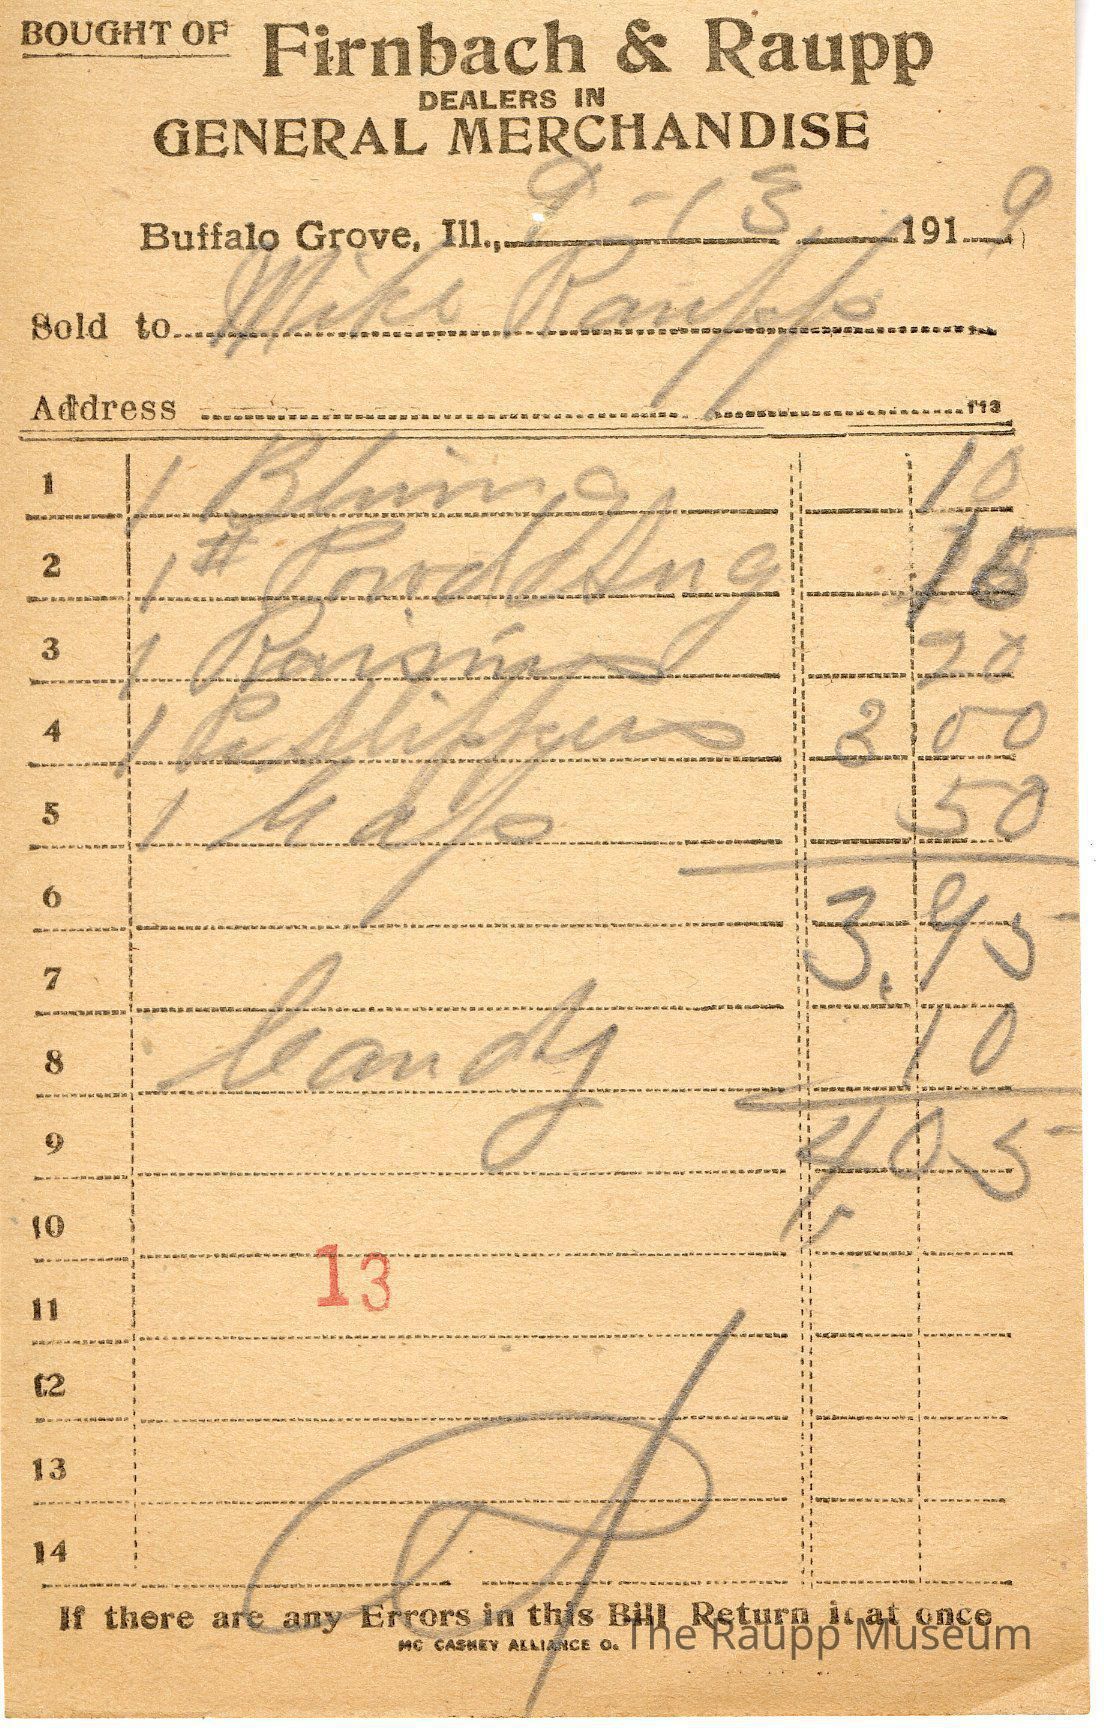 BOUGHT OF Firnbach & Raupp
DEALERS IN
GENERAL MERCHANDISE
Buffalo Grove, Ill., 9-13 1919
Sold to Mike Raupp
Address
1 1 Bluing 10
2 1 # Powdding 15
3 1 Raisins 20
4 1 Pr Slippers 3 00
5 1 Cap 50
6 3.95
7
8 Candy 10
9 4 05
10
13
11
12
13
14
If there are any Errors in this Bill Return it at once
MC CASKEY ALLIANCE O.
The Raupp Museum